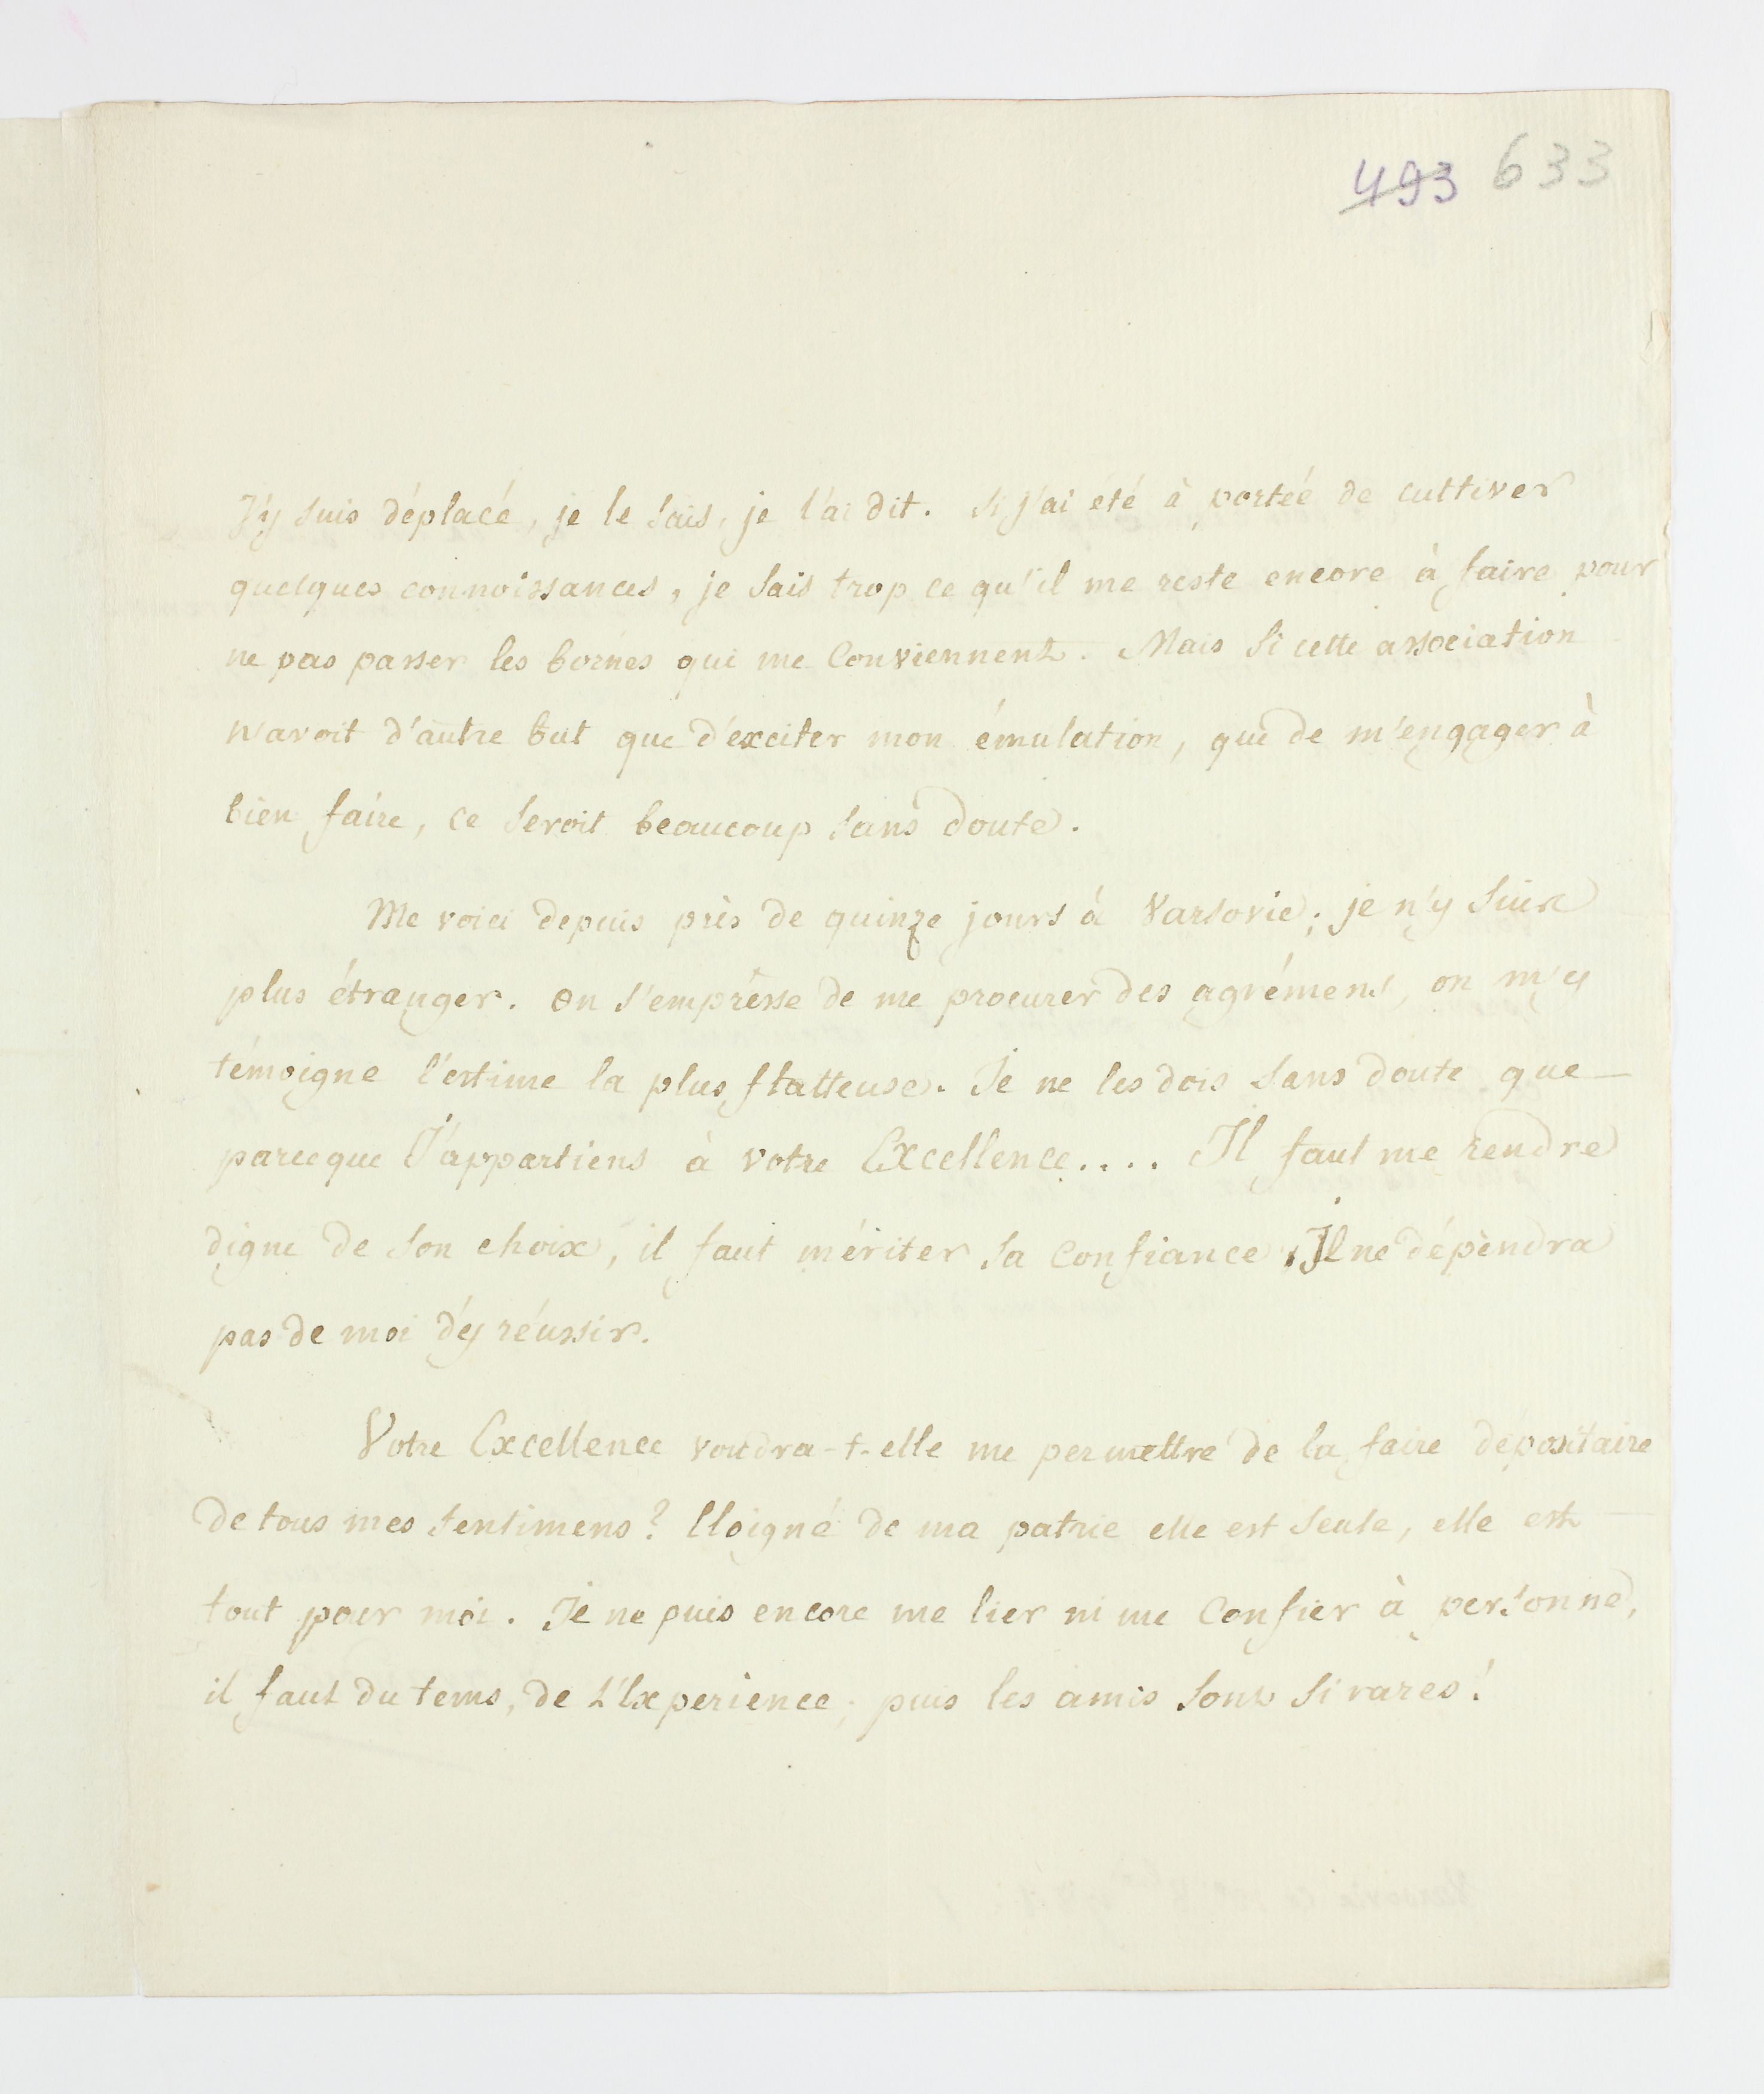 493 633
J'y suis déplacé, je le sais, je l'ai dit. Si j'ai été à portée de cultiver
quelques connoissances, je sais trop ce qu'il me reste encore à faire pour
ne pas passer les bornes qui me conviennent. Mais si cette association
n'avoit d'autre but que d'éxciter mon émulation, que de m'engager à
bien faire, ce seroit beaucoup sans doute.
Me voici depuis près de quinze jours à Varsovie; je n'y suis
plus étranger. on s'emprésse de me procurer des agrémens, on m'y
témoigne l'estime la plus flatteuse. Je ne les dois sans doute que
parceque J'appartiens à votre Excellence.... Il faut me rendre
digne de son choix, il faut mériter sa confiance. Il ne dépendra
pas de moi d'y réussir.
Votre Excellence voudra-t-elle me permettre de la faire dépositaire
de tous mes sentimens? Eloigné de ma patrie elle est seule, elle est
tout pour moi. Je ne puis encore me lier ni me confier à personne,
il faut du tems, de l'Experience; puis les amis sont si rares!